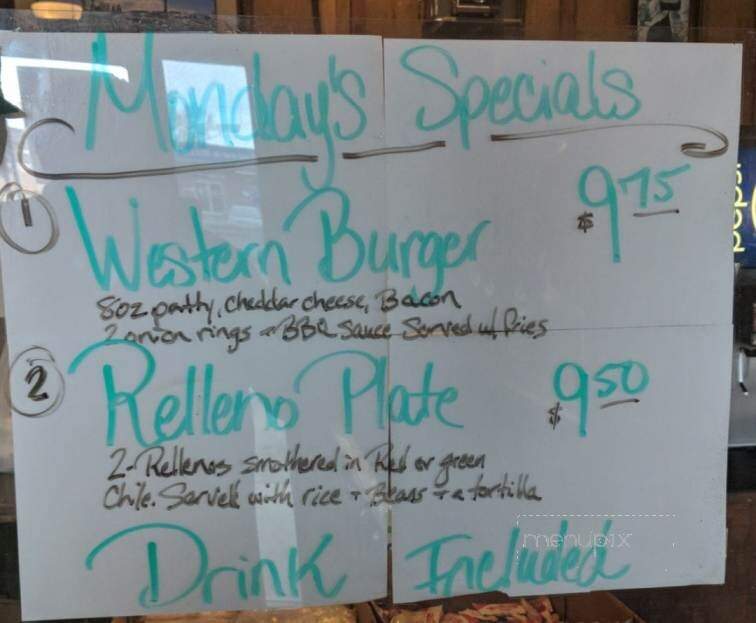 Monday's Specials
1 Western Burger $9 75
8oz patty, cheddar cheese, Bacon
2 onion rings + BBQ Sauce Served w/ fries
2 Relleno Plate $9 50
2-Rellenos smothered in Red or green
Chile. Served with rice + Beans + a tortilla
Drink Included
menupix
pepsi